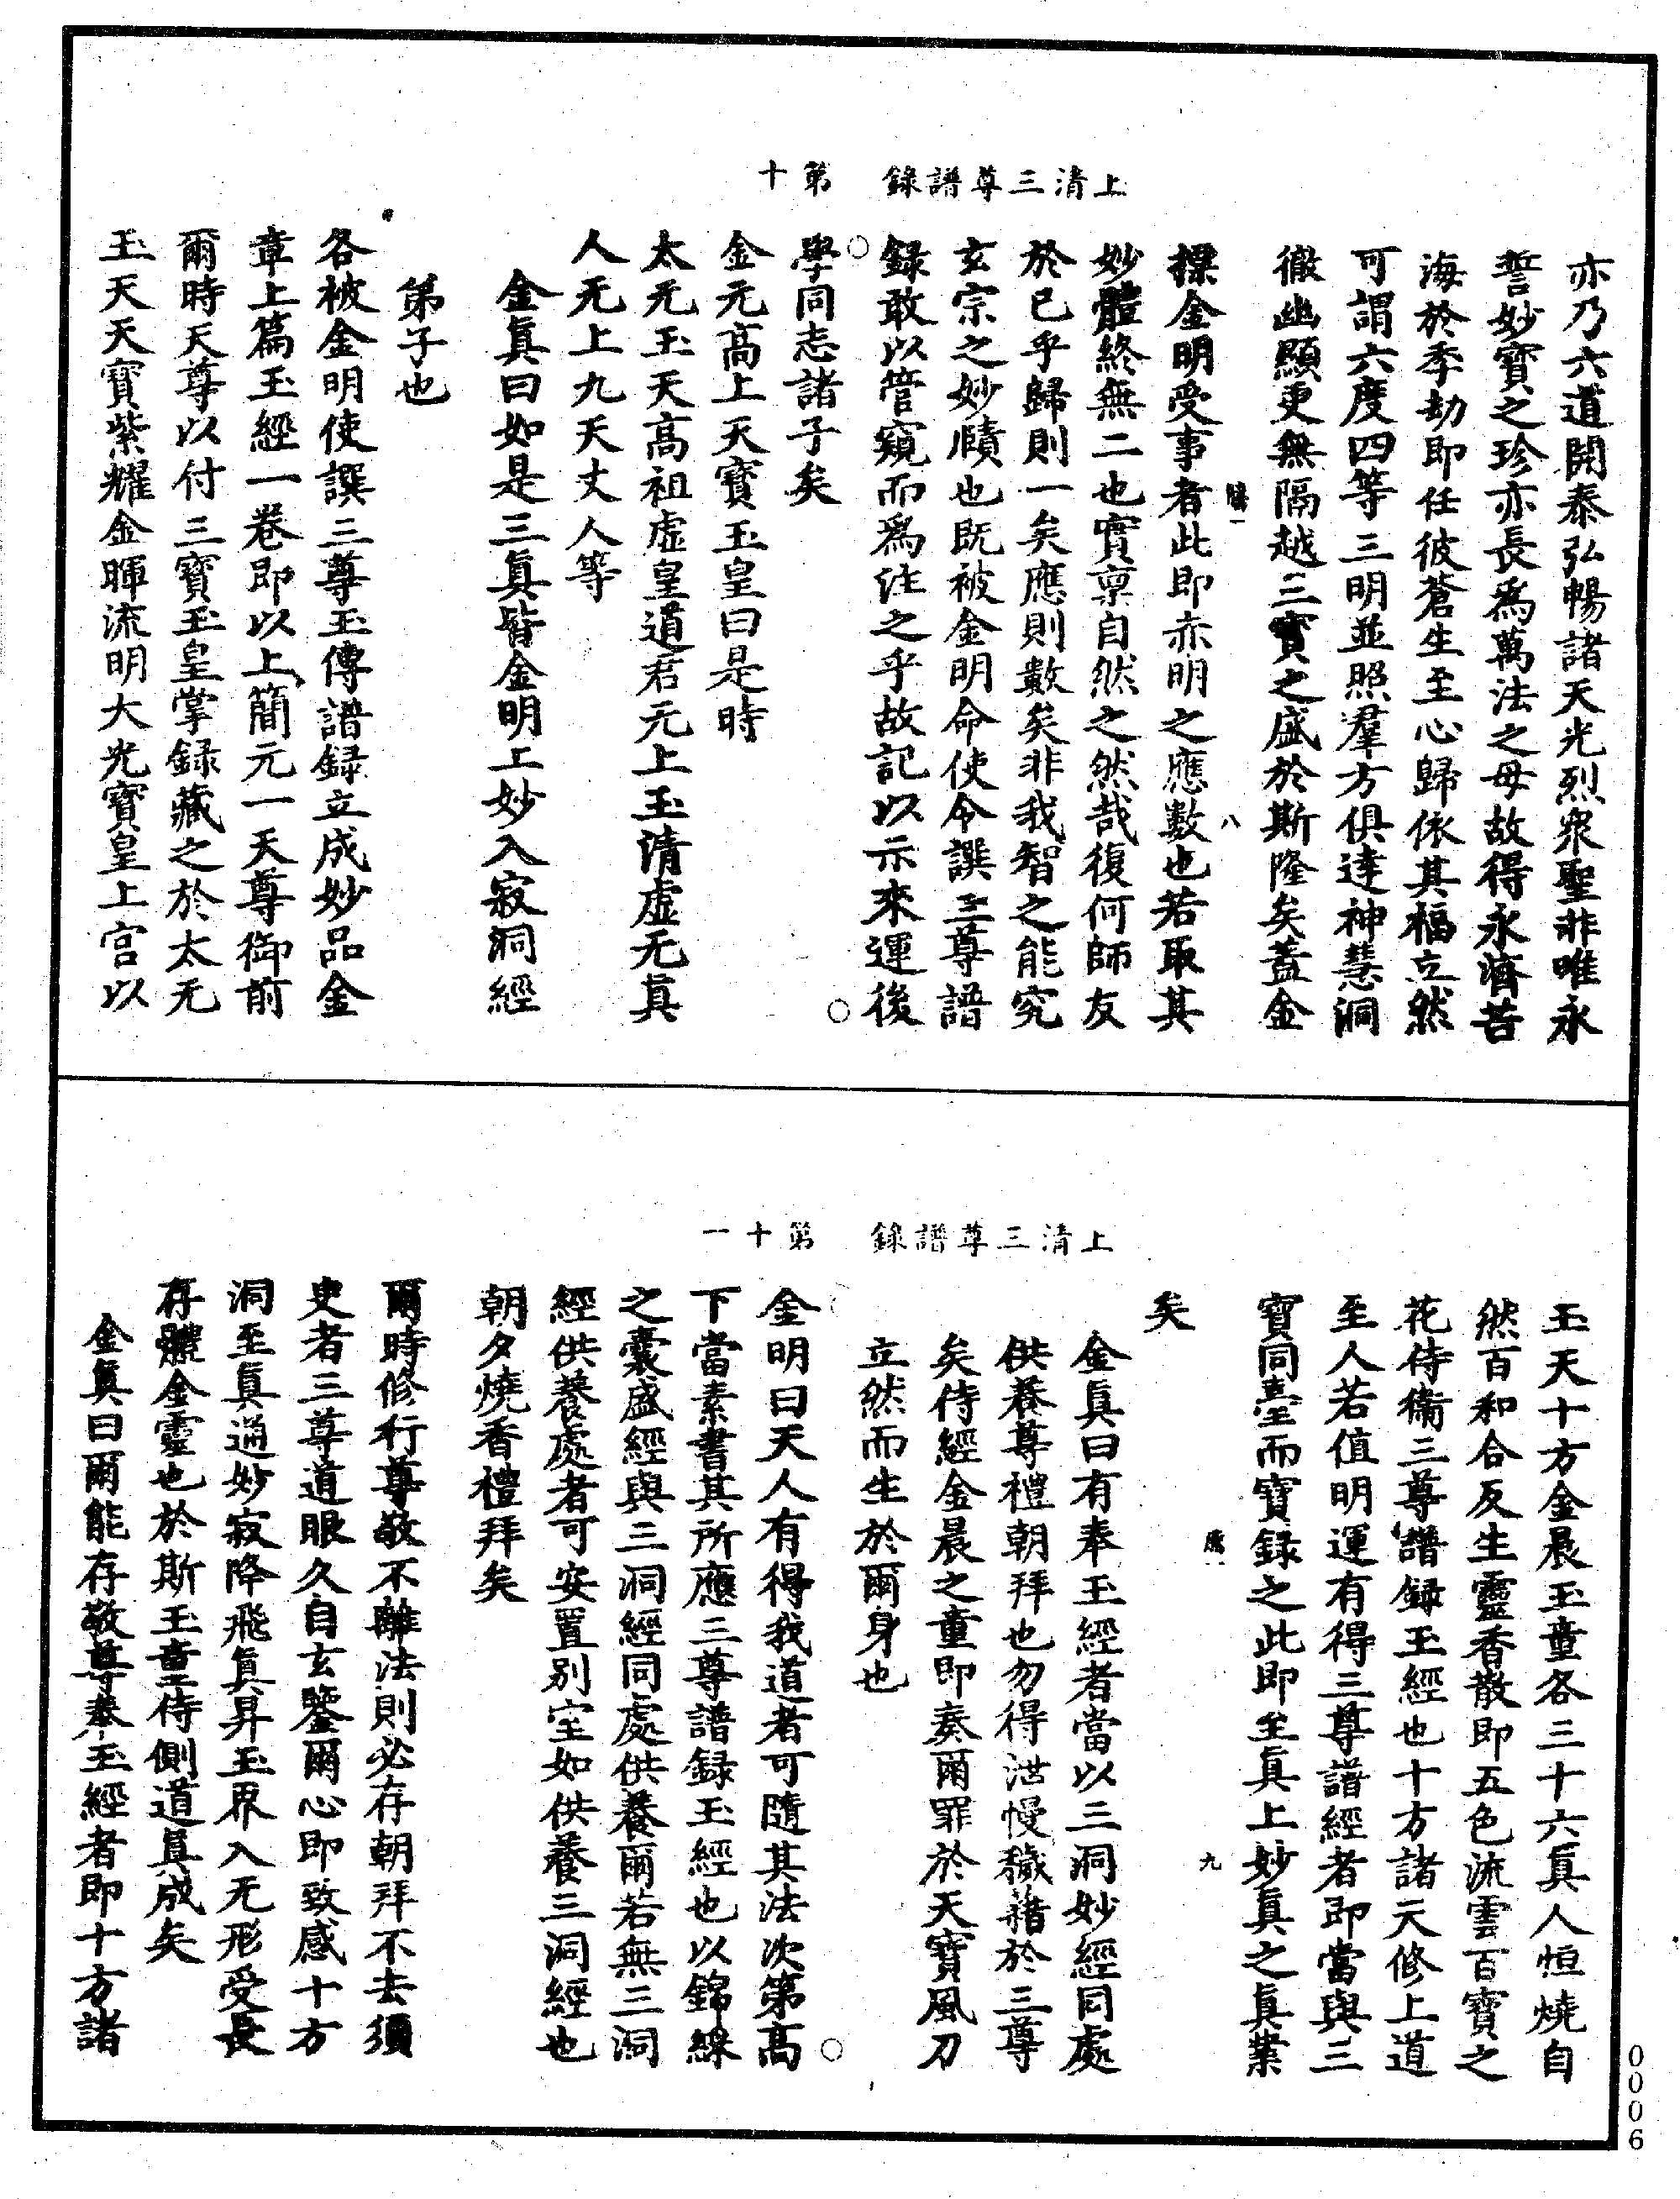 上清三尊譜錄　第十
亦乃六道開泰弘暢諸天光烈衆聖非唯永
誓妙寳之珍亦長爲萬法之母故得永濟苦
海於季劫即任彼蒼生至心歸依其福立然
可謂六度四等三明並照羣方俱達神慧洞
徹幽顯更無隔越三寳之盛於斯隆矣蓋金
八
操金明受事者此即亦明之應數也若取其
妙體終無二也實禀自然之然哉復何師友
於已乎歸則一矣應則數矣非我智之能究
玄宗之妙賾也既被金明命使令譔三尊譜
録敢以管窺而爲注之乎故記以示來運後
學同志諸子矣
金元高上天寳玉皇曰是時
太无玉天高祖虛皇道君元上玉清虛无真
人无上九天丈人等
金眞曰如是三眞皆金明上妙入寂洞經
弟子也
各被金明使譔三尊玉傳譜録立成妙品金
章上篇玉經一卷即以上簡元一天尊御前
爾時天尊以付三寳玉皇掌録藏之於太无
玉天天寳紫耀金暉流明大光寳皇上宫以
上清三尊譜錄　第十一
玉天十方金晨玉童各三十六眞人恒燒自
然百和合反生靈香散即五色流雲百寳之
花侍衞三尊譜録玉經也十方諸天修上道
至人若值明運有得三尊譜經者即當與三
寳同臺而寳録之此即至眞上妙眞之眞業
九
矣
金眞曰有奉玉經者當以三洞妙經同處
供養尊禮朝拜也勿得泄慢穢藉於三尊
矣侍經金晨之童即奏爾罪於天寳風刀
立然而生於爾身也
金明曰天人有得我道者可隨其法次第高
下當素書其所應三尊譜録玉經也以錦綵
之囊盛經與三洞經同處供養爾若無三洞
經供養處者可安置别室如供養三洞經也
朝夕燒香禮拜矣
爾時修行尊敬不離法則必存朝拜不去須
史者三尊道眼久自玄鑒爾心即致感十方
洞至眞通妙寂降飛眞昇玉界入无形受長
存體金靈也於斯玉童侍側道眞成矣
金眞曰爾能存敬尊奉玉經者即十方諸
0006